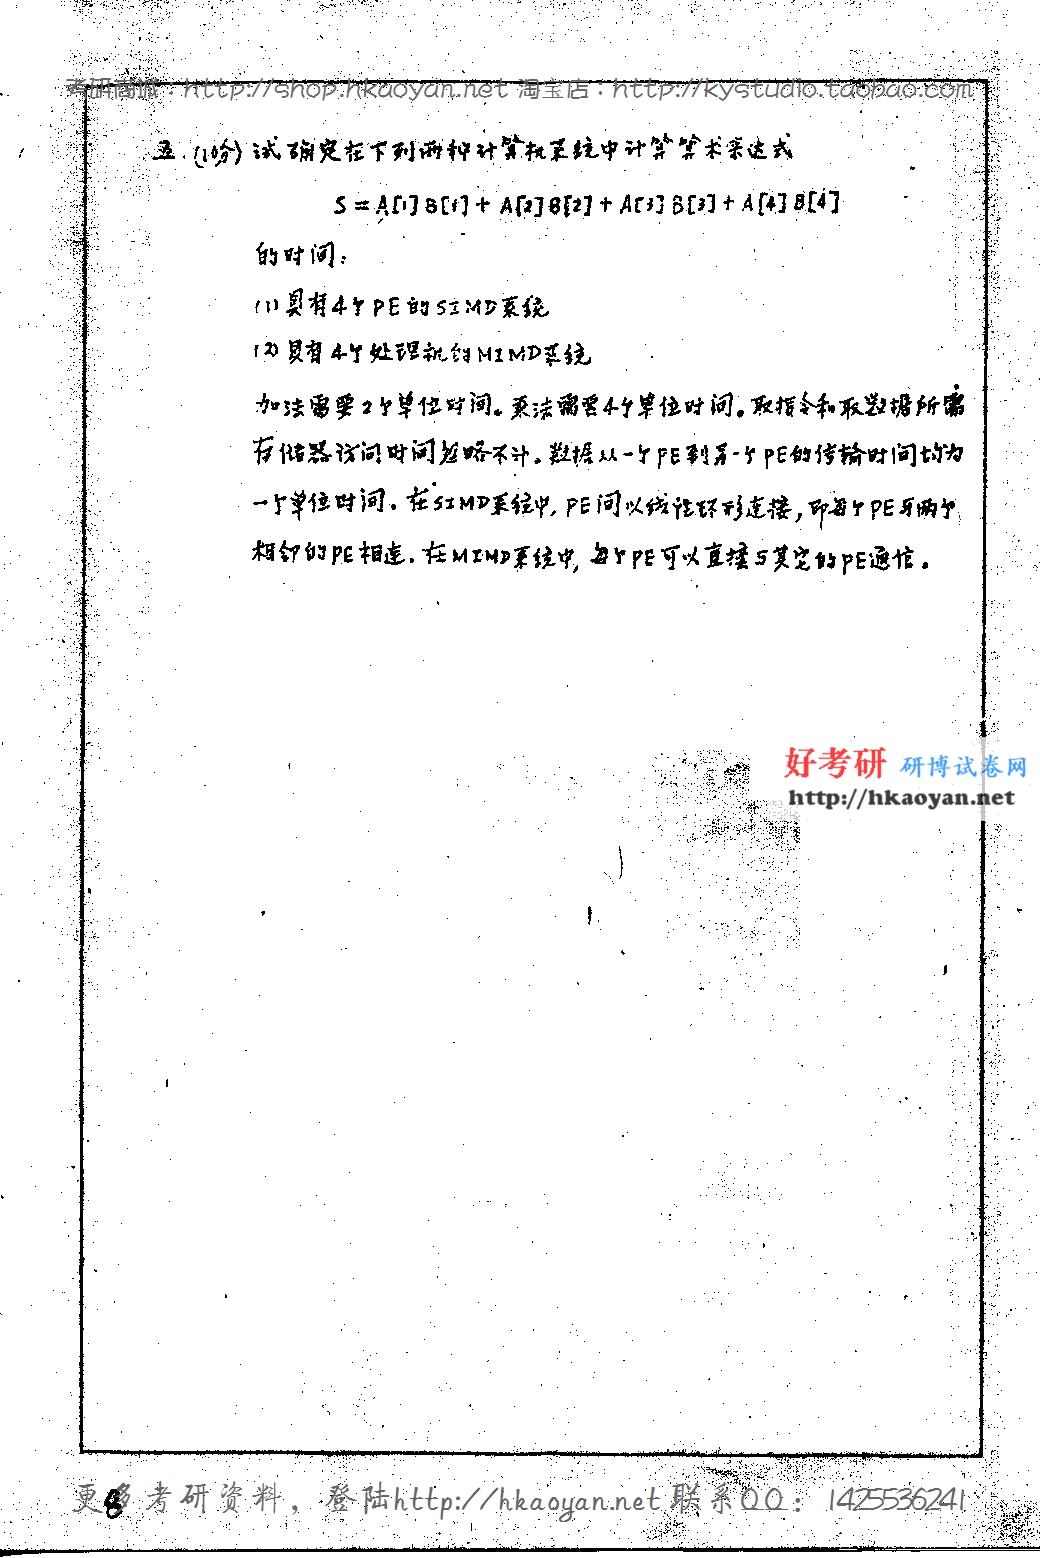 考研商城：http://shop.hkaoyan.net 淘宝店：http://kystudio.taobao.com
五.(10分) 试确定在下列两种计算机系统中计算算术表达式
S = A[1]B[1] + A[2]B[2] + A[3]B[3] + A[4]B[4]
的时间：
(1) 具有4个PE的SIMD系统
(2) 具有4个处理机的MIMD系统
加法需要2个单位时间。乘法需要4个单位时间。取指令和取数据所需
存储器访问时间忽略不计。数据从一个PE到另一个PE的传输时间均为
一个单位时间。在SIMD系统中，PE间以线性环形连接，即每个PE与两个
相邻的PE相连。在MIMD系统中，每个PE可以直接与其它的PE通信。
好考研 研博试卷网
http://hkaoyan.net
8
更多考研资料，登陆http://hkaoyan.net 联系QQ：1425536241